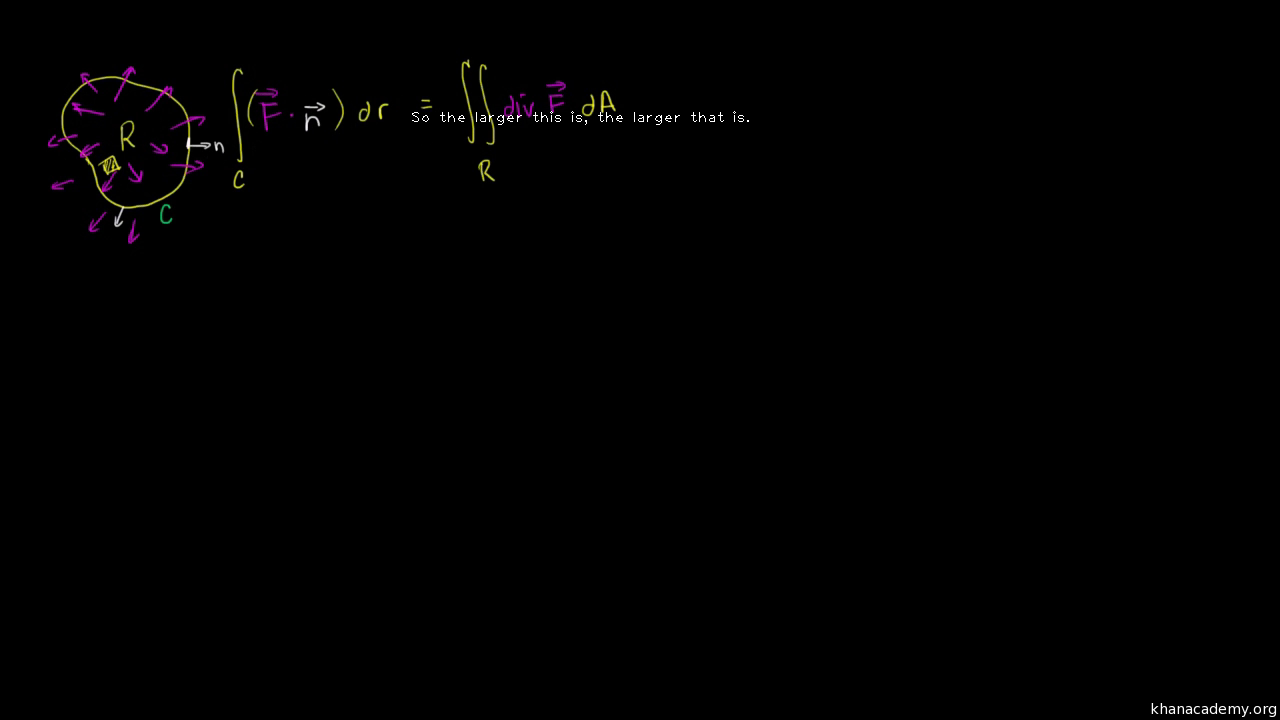 ∫_C (F⃗ · n⃗) dr = ∬_R div F⃗ dA
So the larger this is, the larger that is.
R
n
C
khanacademy.org